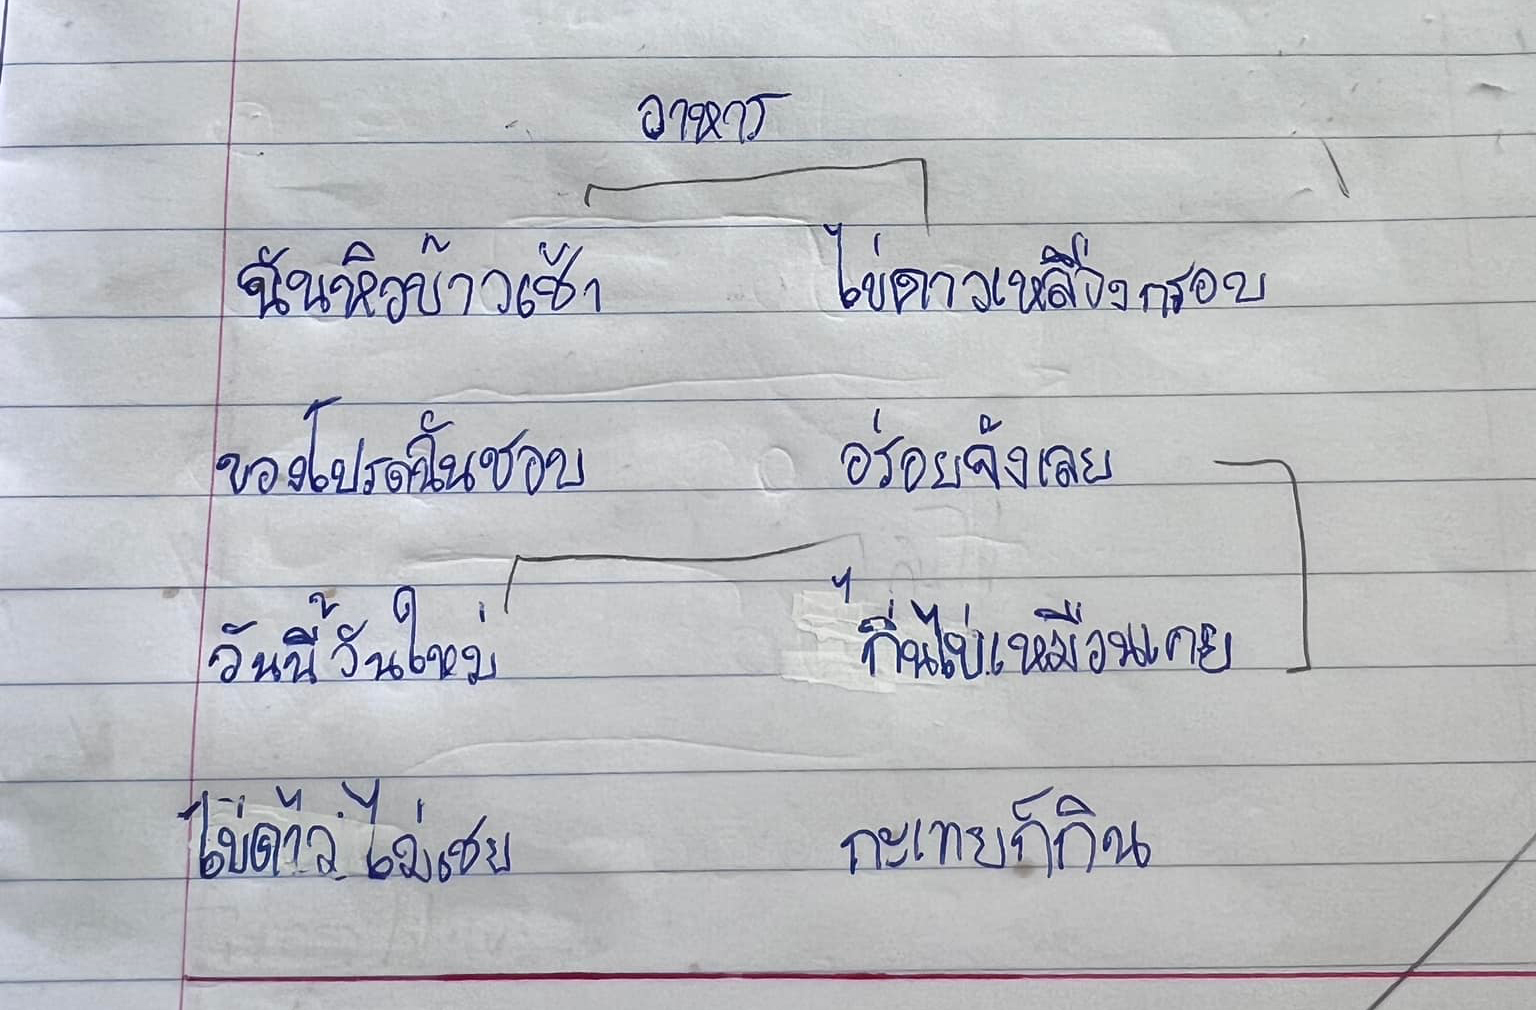 อาหาร
ฉันหิวข้าวเช้า ไข่ดาวเหลืองกรอบ
ของโปรดฉันชอบ อร่อยจังเลย
วันนี้ วันใหม่ กินไข่เหมือนเคย
ไข่ดาว ไม่เชย กะเทยก็กิน